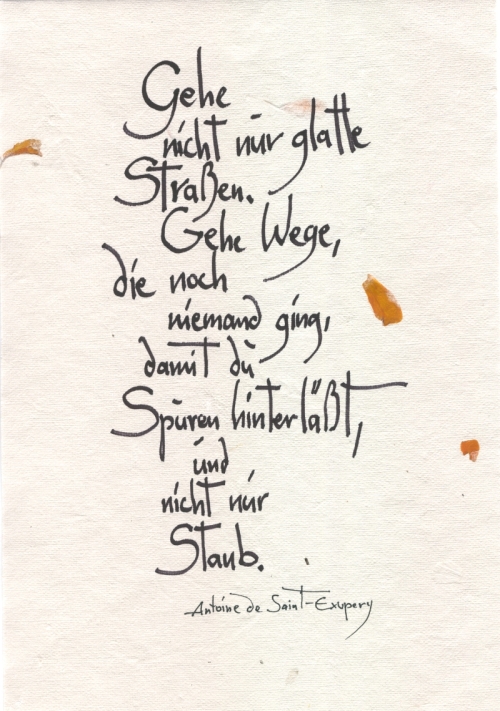 Gehe
nicht nur glatte
Straßen.
Gehe Wege,
die noch
niemand ging,
damit du
Spuren hinterläßt,
und
nicht nur
Staub.
Antoine de Saint-Exupery